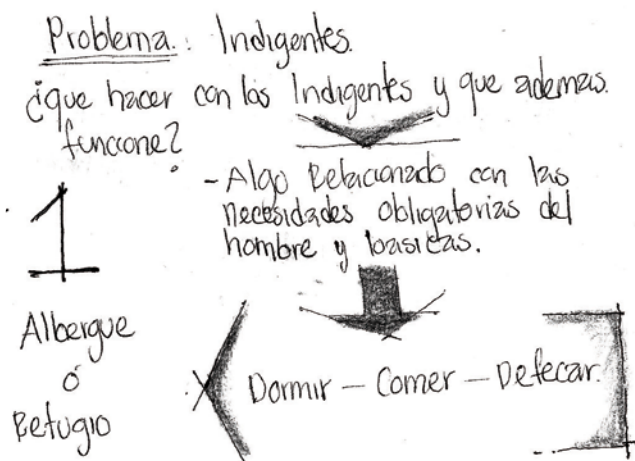 Problema.: Indigentes.
¿que hacer con los Indigentes y que ademas.
funcione?
1
- Algo Relacionado con las
necesidades obligatorias del
hombre y basicas.
Albergue
ó
Refugio
Dormir - Comer - Defecar.